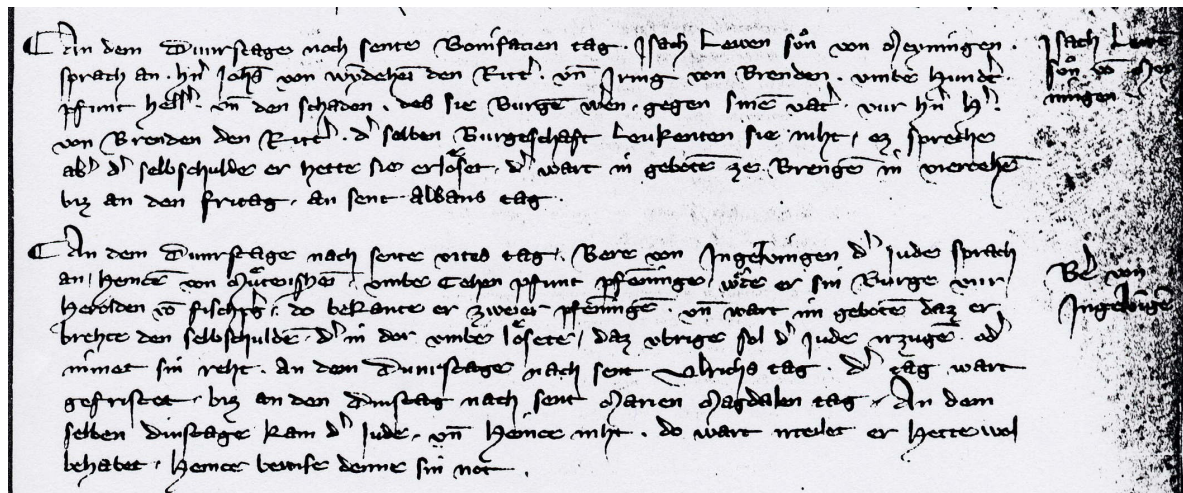 An dem Dunrstage noch sente Bonifacien tag. Jsach Lewen sůn von Meyningen.
sprach an. hn̄ Johs̄ von wydeheī den Ritt̾. vn̄ Jring von Brenden. vmbe hundt̾
pfunt hell̾. vn̄ den schaden. des sie Burgē wēn. gegen sinē vat̾. vur hn̄ H̾.
von Brenden den Ritt̾. d̾ selben Burgeschaft leukenten sie niht, ez spreche
ab̾ d̾ selbschulde er hette sie erlöset. d̾ wart in gebotē ze Brengē in viercehē
biz an den fritag. an sent albans tag.
An dem Dunrstage nach sente vites tag. Bere von Jngelvingen d̾ Jude sprach
an, Heincē von vmbe cehen pfunt pfenninge, wōde er sin Burge vur
Herolden vō do bekante er zweier pfenningē. vn̄ wart im gebotē daz er
brehte den selbschuldē. d̾ in dor vmbe lösete, daz vbrige sol d̾ Jude irzugē. od̾
nimet sin reht. An dem Dunrstage nach sent Vlrichs tag. d̾ tag wart
gefristet. biz an den dinstag nach sent Marien Magdalen tag. An dem
selben dinstage kam d̾ Jude. vn̄ Heince niht. do wart irteilet er hette wol
behabet. Heince bewise denne sin not.
Jsach Lewen
sůn. vō Mey
ningen
B̾e von
Jngelvingē